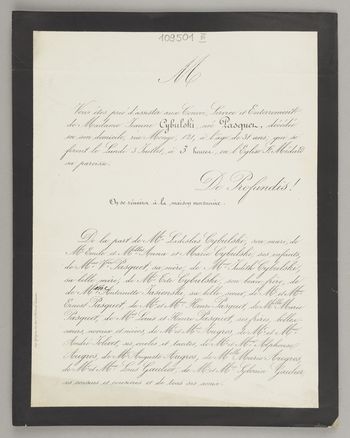 109501 III
M
Vous êtes prié d'assister aux Convoi, Service et Enterrement
de Madame Jeanne Cybulski, née Pasquet, décédée
en son domicile, rue Monge, 121, à l'âge de 31 ans, qui se
feront le Lundi 3 Juillet, à 3 heures, en l'Eglise St Médard
sa paroisse.
De Profundis!
On se réunira à la maison mortuaire.
De la part de Mr Ladislas Cybulski, son mari, de
Mr Emile et Mlles Anna et Marie Cybulski, ses enfants,
de Mme Vve Pasquet, sa mère, de Mme Judith Cybulska,
sa belle mère, de Mr Cybulski, son beau père,
de Mme Antoinette, sa belle sœur, de Mr et Mme
Ernest Pasquet, de Mr et Mme Henri Pasquet, de Mlle Marie
Pasquet, de Mrs Louis et Henri Pasquet, ses frères, belles
sœurs, neveux et nièces, de Mr et Mme Augros, de Mr et Mme
André, ses oncles et tantes, de Mr et Mme Alphonse
Augros, de Mr Auguste Augros, de Mlle Marie Augros,
de Mr et Mme Louis Gaulier, de Mr et Mme Sylvain Gaulier
ses cousins et cousines et de tous ses amis.